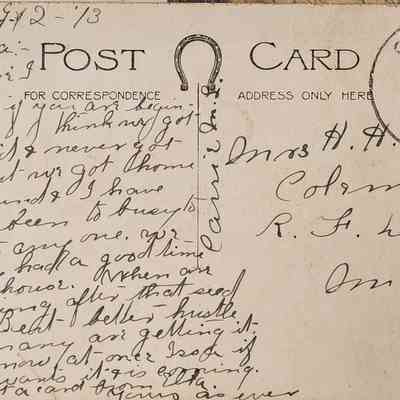 12 - '13
POST CARD
FOR CORRESPONDENCE
ADDRESS ONLY HERE
if you are begin-
think we got
& never got
we got home
& I have
been to busy to
any one. we
had a good time
house. When are
after that seed
Bent - better hustle
many are getting it.
now (at once) if
wants it is coming.
a card from Etta.
Yours as ever
Carrie M. S.
Mrs H. H.
Colem
R. F.